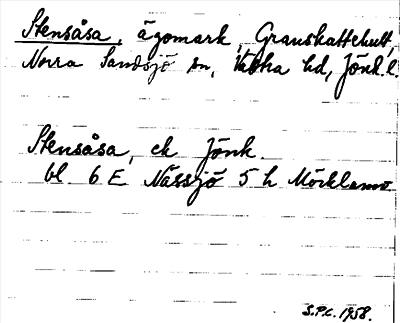 Stensåsa, ägomark, Granshattehult,
Norra Sandsjö sn, Västra hd, Jönk. l.
Stensåsa, ek Jönk.
bl. 6 E Nässjö 5 h Mörklamo
S.P.C. 1958.